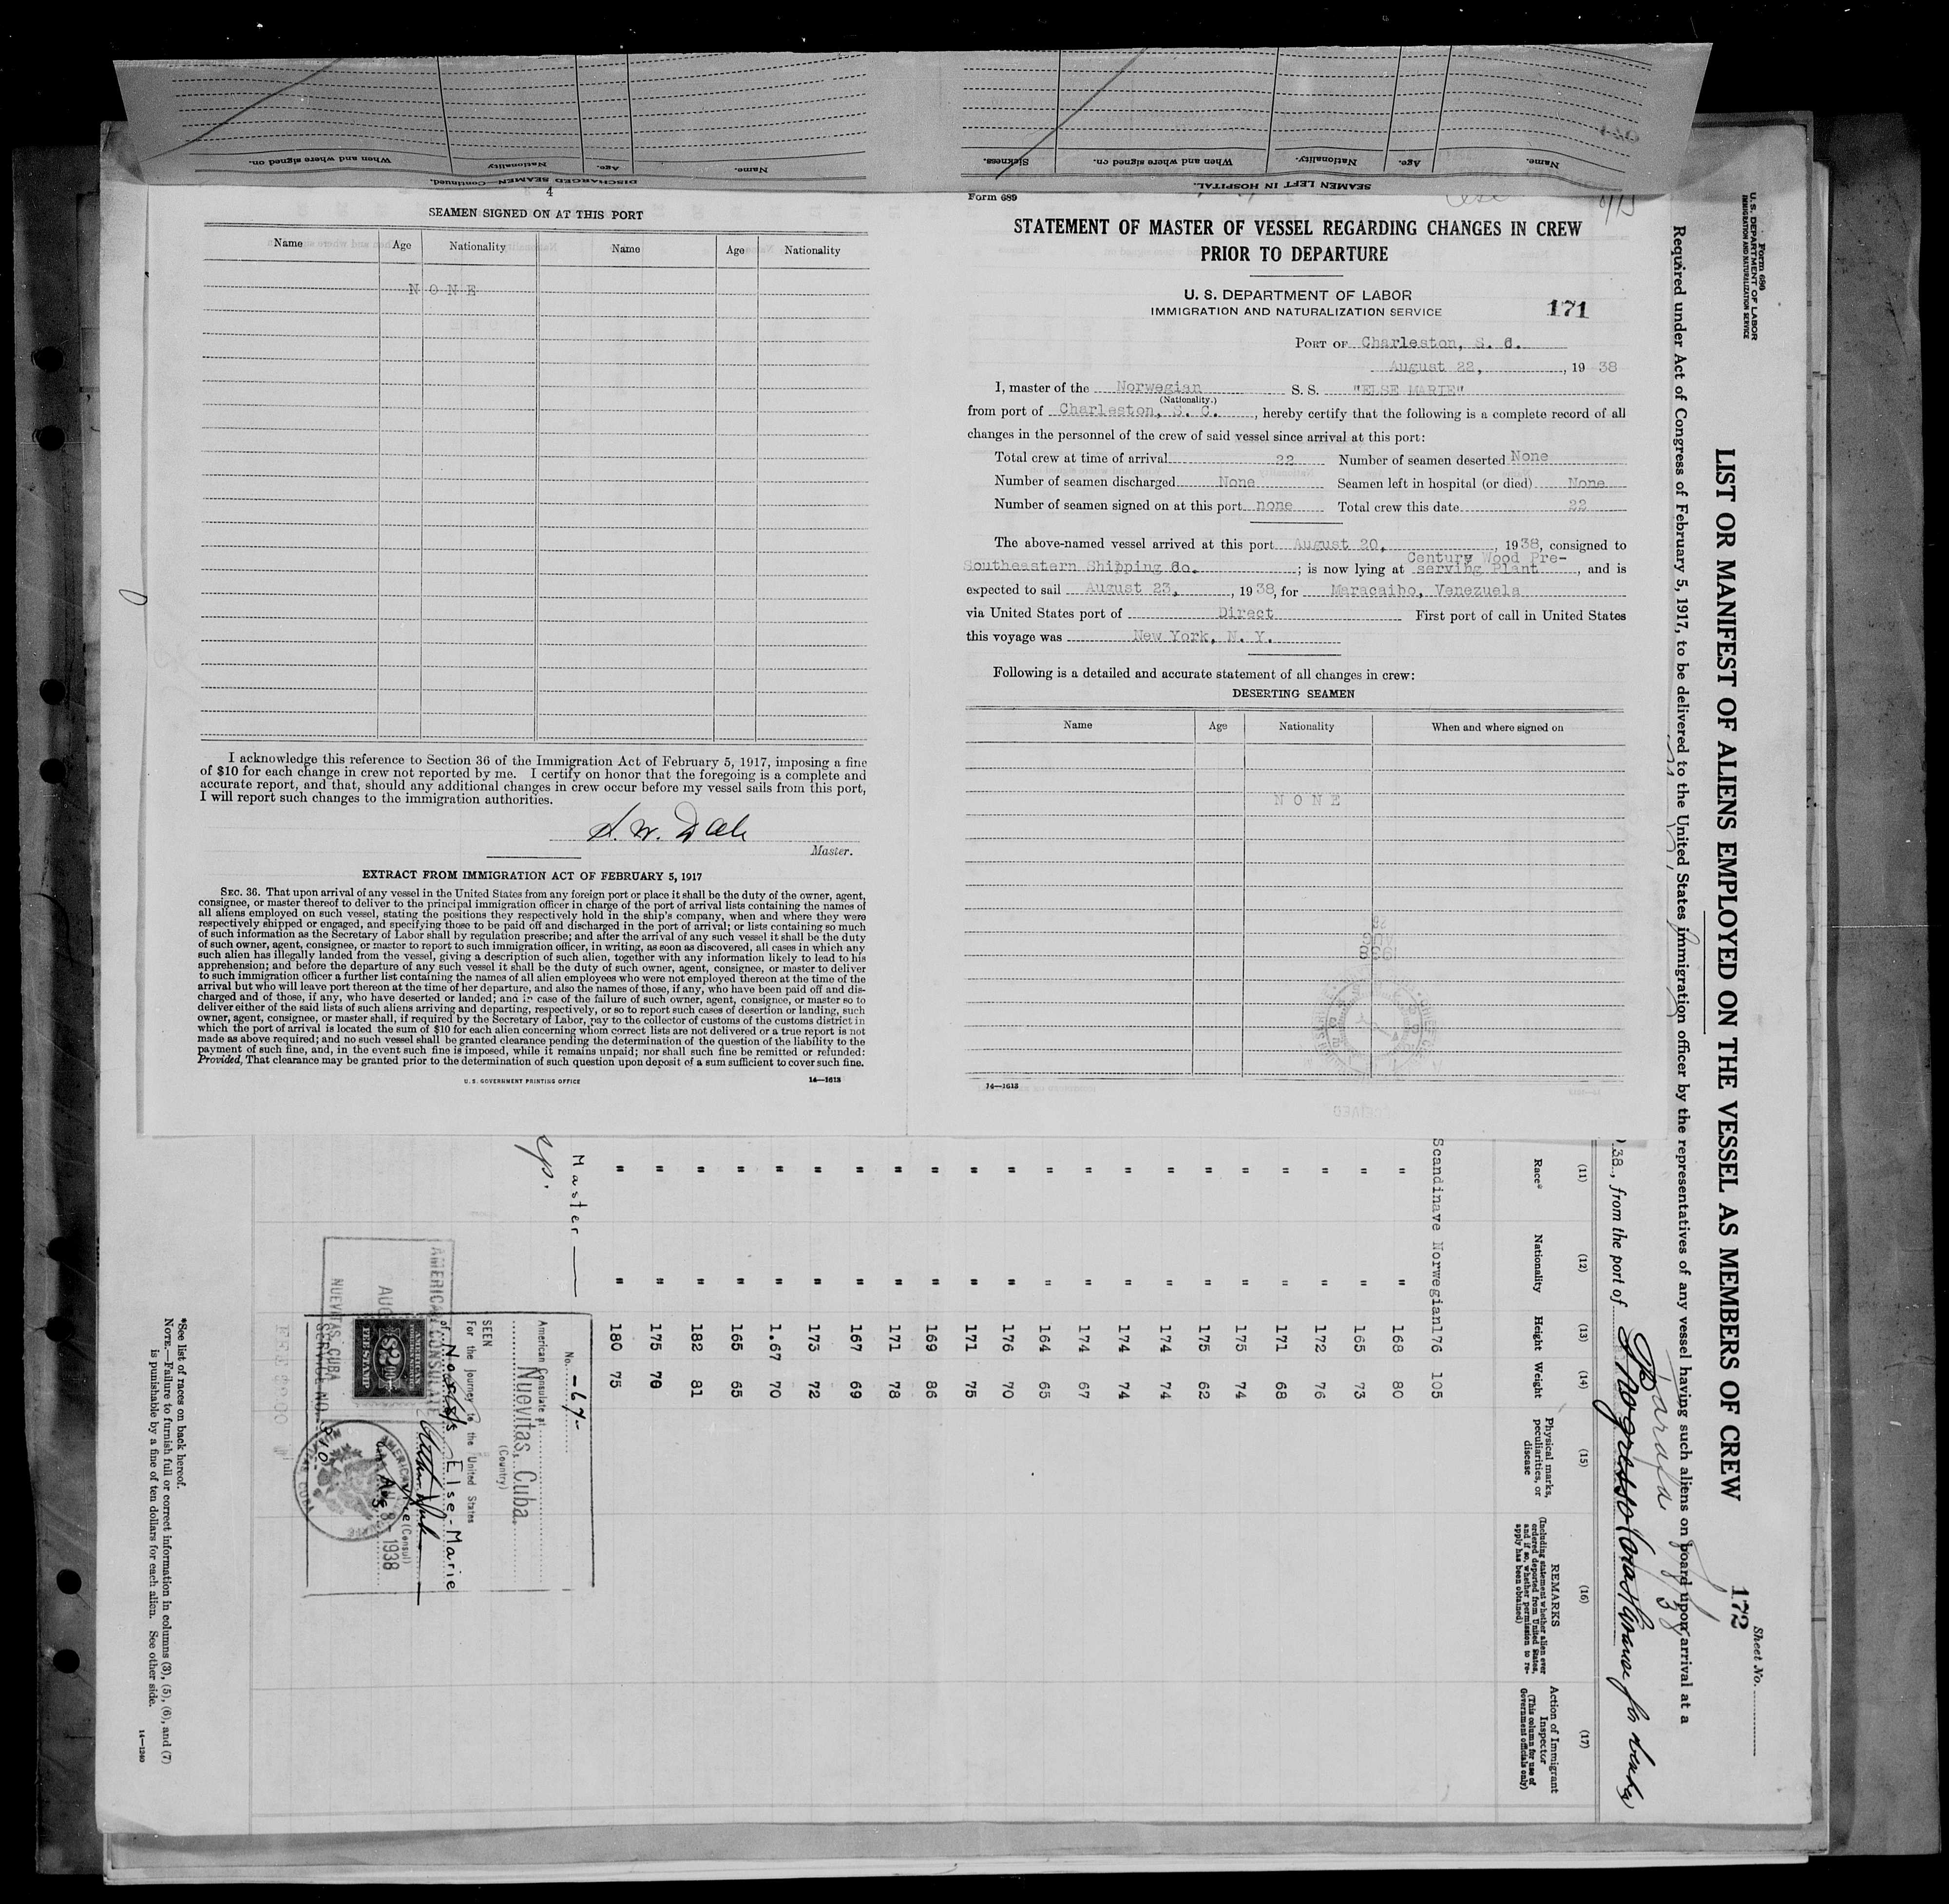 DISCHARGED SEAMEN—Continued.
Name. Age. Nationality When and where signed on.
SEAMEN LEFT IN HOSPITAL.
Name. Age. Nationality. When and where signed on. Sickness.
4
SEAMEN SIGNED ON AT THIS PORT
Name Age Nationality Name Age Nationality
NONE
I acknowledge this reference to Section 36 of the Immigration Act of February 5, 1917, imposing a fine
of $10 for each change in crew not reported by me. I certify on honor that the foregoing is a complete and
accurate report, and that, should any additional changes in crew occur before my vessel sails from this port,
I will report such changes to the immigration authorities.
Master.
EXTRACT FROM IMMIGRATION ACT OF FEBRUARY 5, 1917
SEC. 36. That upon arrival of any vessel in the United States from any foreign port or place it shall be the duty of the owner, agent,
consignee, or master thereof to deliver to the principal immigration officer in charge of the port of arrival lists containing the names of
all aliens employed on such vessel, stating the positions they respectively hold in the ship's company, when and where they were
respectively shipped or engaged, and specifying those to be paid off and discharged in the port of arrival; or lists containing so much
of such information as the Secretary of Labor shall by regulation prescribe; and after the arrival of any such vessel it shall be the duty
of such owner, agent, consignee, or master to report to such immigration officer, in writing, as soon as discovered, all cases in which any
such alien has illegally landed from the vessel, giving a description of such alien, together with any information likely to lead to his
apprehension; and before the departure of any such vessel it shall be the duty of such owner, agent, consignee, or master to deliver
to such immigration officer a further list containing the names of all alien employees who were not employed thereon at the time of the
arrival but who will leave port thereon at the time of her departure, and also the names of those, if any, who have been paid off and dis-
charged and of those, if any, who have deserted or landed; and in case of the failure of such owner, agent, consignee, or master so to
deliver either of the said lists of such aliens arriving and departing, respectively, or so to report such cases of desertion or landing, such
owner, agent, consignee, or master shall, if required by the Secretary of Labor, pay to the collector of customs of the customs district in
which the port of arrival is located the sum of $10 for each alien concerning whom correct lists are not delivered or a true report is not
made as above required; and no such vessel shall be granted clearance pending the determination of the question of the liability to the
payment of such fine, and, in the event such fine is imposed, while it remains unpaid; nor shall such fine be remitted or refunded:
Provided, That clearance may be granted prior to the determination of such question upon deposit of a sum sufficient to cover such fine.
U.S. GOVERNMENT PRINTING OFFICE 14—1613
Form 689
STATEMENT OF MASTER OF VESSEL REGARDING CHANGES IN CREW
PRIOR TO DEPARTURE
U. S. DEPARTMENT OF LABOR
IMMIGRATION AND NATURALIZATION SERVICE
171
PORT OF Charleston, S. C.
August 22, , 19 38
I, master of the Norwegian S. S. "ELSE MARIE"
(Nationality.)
from port of Charleston, S. C. , hereby certify that the following is a complete record of all
changes in the personnel of the crew of said vessel since arrival at this port:
Total crew at time of arrival 22 Number of seamen deserted None
Number of seamen discharged None Seamen left in hospital (or died) None
Number of seamen signed on at this port none Total crew this date 22
The above-named vessel arrived at this port August 20, , 1938, consigned to
Southeastern Shipping Co. ; is now lying at Century Wood Pre-
serving Plant , and is
expected to sail August 23, , 19 38, for Maracaibo, Venezuela
via United States port of Direct First port of call in United States
this voyage was New York, N. Y.
Following is a detailed and accurate statement of all changes in crew:
DESERTING SEAMEN
Name Age Nationality When and where signed on
NONE
14—1613
Form 689
U. S. DEPARTMENT OF LABOR
IMMIGRATION AND NATURALIZATION SERVICE
Sheet No.
172
LIST OR MANIFEST OF ALIENS EMPLOYED ON THE VESSEL AS MEMBERS OF CREW
Required under Act of Congress of February 5, 1917, to be delivered to the United States immigration officer by the representatives of any vessel having such aliens on board upon arrival at a
38., from the port of
(11) (12) (13) (14) (15) (16) (17)
Race* Nationality Height Weight Physical marks, peculiarities, or disease REMARKS (Including statement whether alien ever ordered deported from United States, and if so, whether permission to re-apply has been obtained) Action of Immigrant Inspector (This column for use of Government officials only)
Scandinave Norwegian 176 105
" " 168 80
" " 165 73
" " 172 76
" " 171 68
" " 175 74
" " 175 62
" " 174 74
" " 174 74
" " 174 67
" " 164 65
" " 176 70
" " 171 75
" " 169 86
" " 171 78
" " 167 69
" " 173 72
" " 1.67 70
" " 165 65
" " 182 81
" " 175 70
" " 180 75
Master
No. -67-
American Consulate at
Nuevitas, Cuba.
(Country)
SEEN
For the journey to the United States
of Norw. s/s Else-Marie
(Consul)
Aug 8- 1938
AMERICAN CONSULATE
AUG
NUEVITAS, CUBA
SERVICE NO.
$2.00
FEE STAMP
*See list of races on back hereof.
NOTE.—Failure to furnish full or correct information in columns (3), (5), (6), and (7)
is punishable by a fine of ten dollars for each alien. See other side.
14—1240